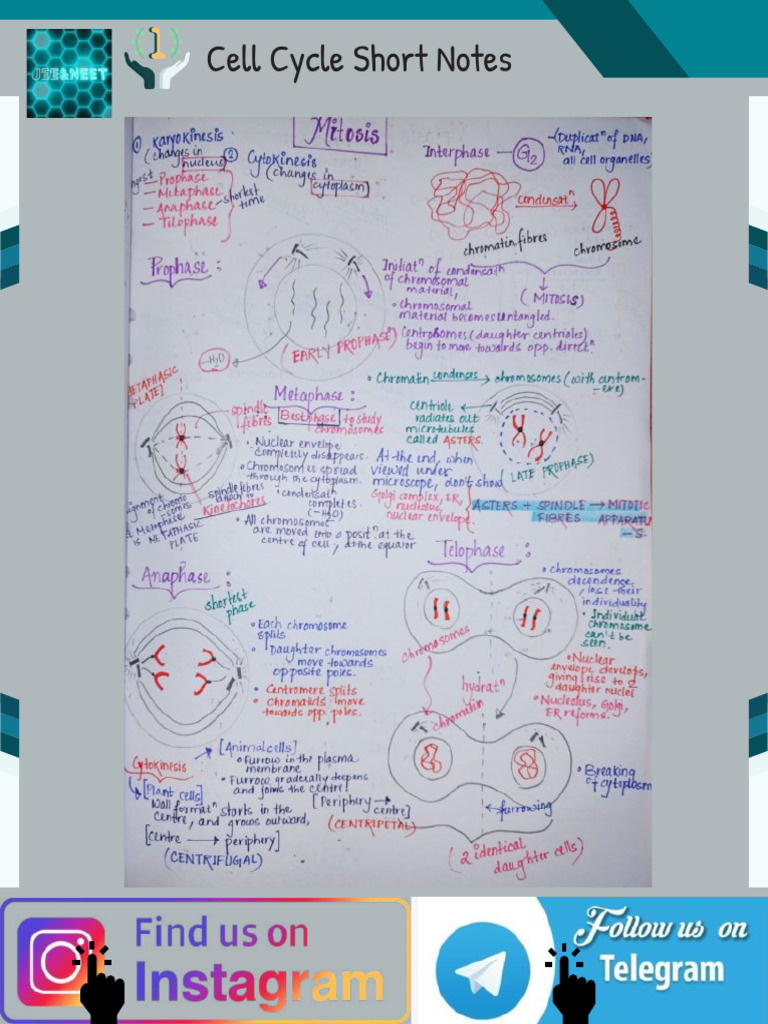 JEE&NEET
1
Cell Cycle Short Notes
Mitosis
① Karyokinesis
(changes in
nucleus)
② Cytokinesis
(changes in
cytoplasm)
— Prophase
— Metaphase
— Anaphase – shortest
time
— Tilophase
Interphase — G2
(Duplicatⁿ of DNA,
RNA,
all cell organelles)
condensatⁿ
chromatin fibres
chromosome
(MITOSIS)
Prophase :
Initiatⁿ of condensatⁿ
of chromosomal
material,
• Chromosomal
material becomes untangled.
Centrosomes (daughter centrioles)
begin to move towards opp. directⁿ
(EARLY PROPHASE)
-H2O
• Chromatin condenses → chromosomes (with centrom-
ere)
METAPHASIC
PLATE]
spindle
fibres
Metaphase :
Best phase to study
chromosomes
• Nuclear envelope
completely disappears.
• Chromosomes spread
through the cytoplasm.
• condensatⁿ
completes.
(-H2O)
• All chromosomes
are moved into a positⁿ at the
centre of cell, at the equator
spindle fibres
attach to
kinetochores
alignment
of chromo
-somes
at Metaphase
is METAPHASIC
PLATE
centriole
radiates out
microtubules
called ASTERS.
(LATE PROPHASE)
At the end, when
viewed under
microscope, don't show
Golgi complex, ER,
nucleolus,
nuclear envelope.
ASTERS + SPINDLE → MITOTIC
FIBRES APPARATU
-S.
Anaphase :
shortest
phase
• Each chromosome
splits
• Daughter chromosomes
move towards
opposite poles.
• Centromere splits
• Chromatids move
towards opp. poles.
Telophase :
• Chromosomes
decondence
, lose their
individuality
• Individual
chromosome
can't be
seen.
• Nuclear
envelope develops,
giving rise to 2
daughter nuclei
• Nucleolus, Golgi,
ER reforms.
chromosomes
hydratⁿ
chromatin
• Breaking
of cytoplasm
furrowing
(2 identical
daughter cells)
Cytokinesis
[Animal cells]
• Furrow in the plasma
membrane
• Furrow graderally deepens
and joins the centre!
[Periphery →
centre]
(CENTRIPETAL)
[Plant cells]
Wall formatⁿ starts in the
centre, and grows outward,
[centre → periphery]
(CENTRIFUGAL)
Find us on
Instagram
Follow us on
Telegram